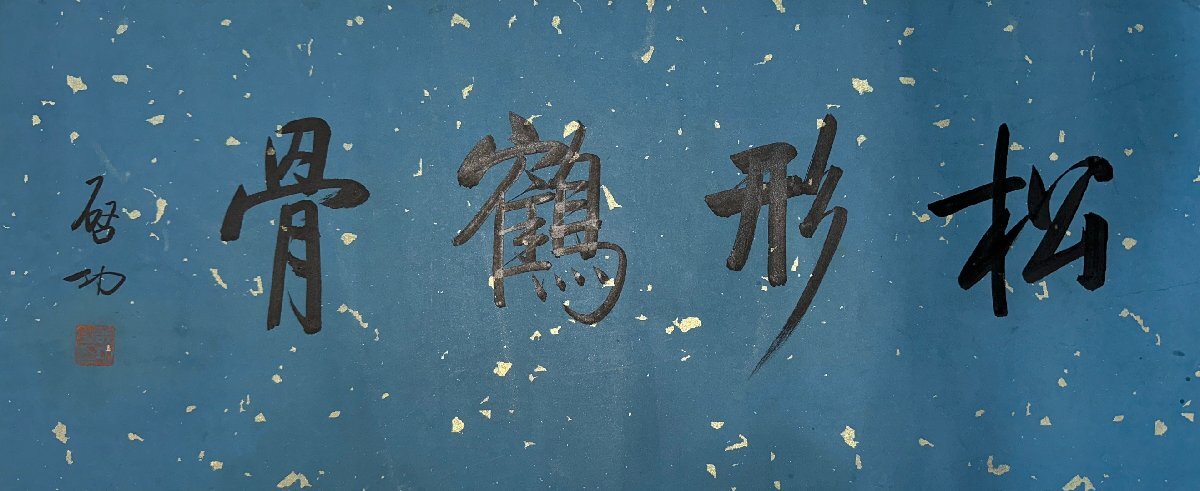 松形鶴骨
启功